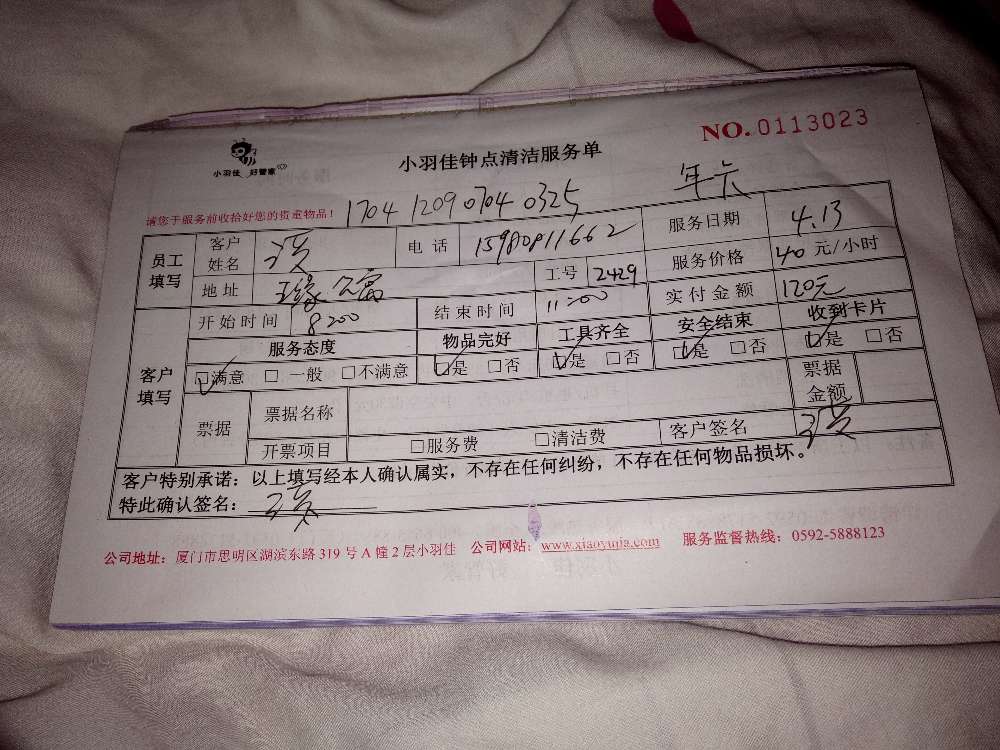 NO.0113023
小羽佳 好管家
小羽佳钟点清洁服务单
年卡
请您于服务前收拾好您的贵重物品！ 1704 1209 0704 0325
员工填写 客户姓名 电话 15980811662 服务日期 4.13
地址 工号 2429 服务价格 40元/小时
客户填写 开始时间 8:00 结束时间 11:00 实付金额 120元
服务态度 物品完好 工具齐全 安全结束 收到卡片
☑满意 □一般 □不满意 ☑是 □否 ☑是 □否 ☑是 □否 ☑是 □否
票据 票据名称 票据金额
开票项目 □服务费 □清洁费 客户签名
客户特别承诺：以上填写经本人确认属实，不存在任何纠纷，不存在任何物品损坏。
特此确认签名：
公司地址：厦门市思明区湖滨东路319号A幢2层小羽佳 公司网站：www.xiaoyujia.com 服务监督热线：0592-5888123